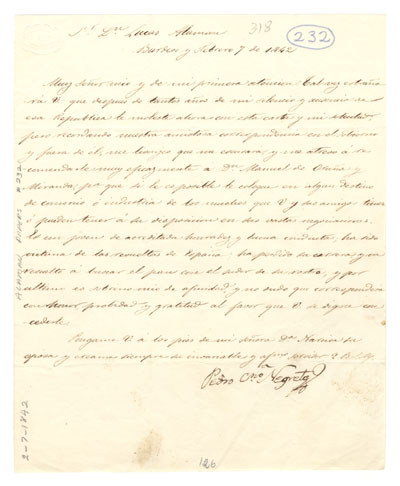 318
232
Sr. Dn. Lucas Alaman
Burdeos y Febrero 7 de 1842
Muy Señor mio y de mi primera atencion: Tal vez estraña
rá V. que despues de tantos años de mi silencio y ausencia de
esa Republica le moleste ahora con esta carta y mi
pero recordando nuestra amistosa correspondencia en el
y fuera de él, me
comendarle muy eficazmente a Dn. Manuel de
Miranda, pr. que si le es posible le coloque en algun destino
de comercio ó industria de los muchos que V. y sus amigos tienen
ó pueden tener á su disposicion en sus vastas negociaciones.
Es un joven de acreditada honradez y buena conducta; ha sido
victima de las revueltas de España; ha perdido su carrera, y va
resuelto á buscar el pan con el sudor de su rostro, y por
ultimo es sobrino mio de afinidad y no dudo que corresponderá
con honor probidad y gratitud al favor que V. se digne con
cederle.
Pongame V. á los pies de mi señora Da. Narcisa su
esposa y
Pedro Ma. Negrete
ALAMAN PAPERS #232
2-7-1842
126